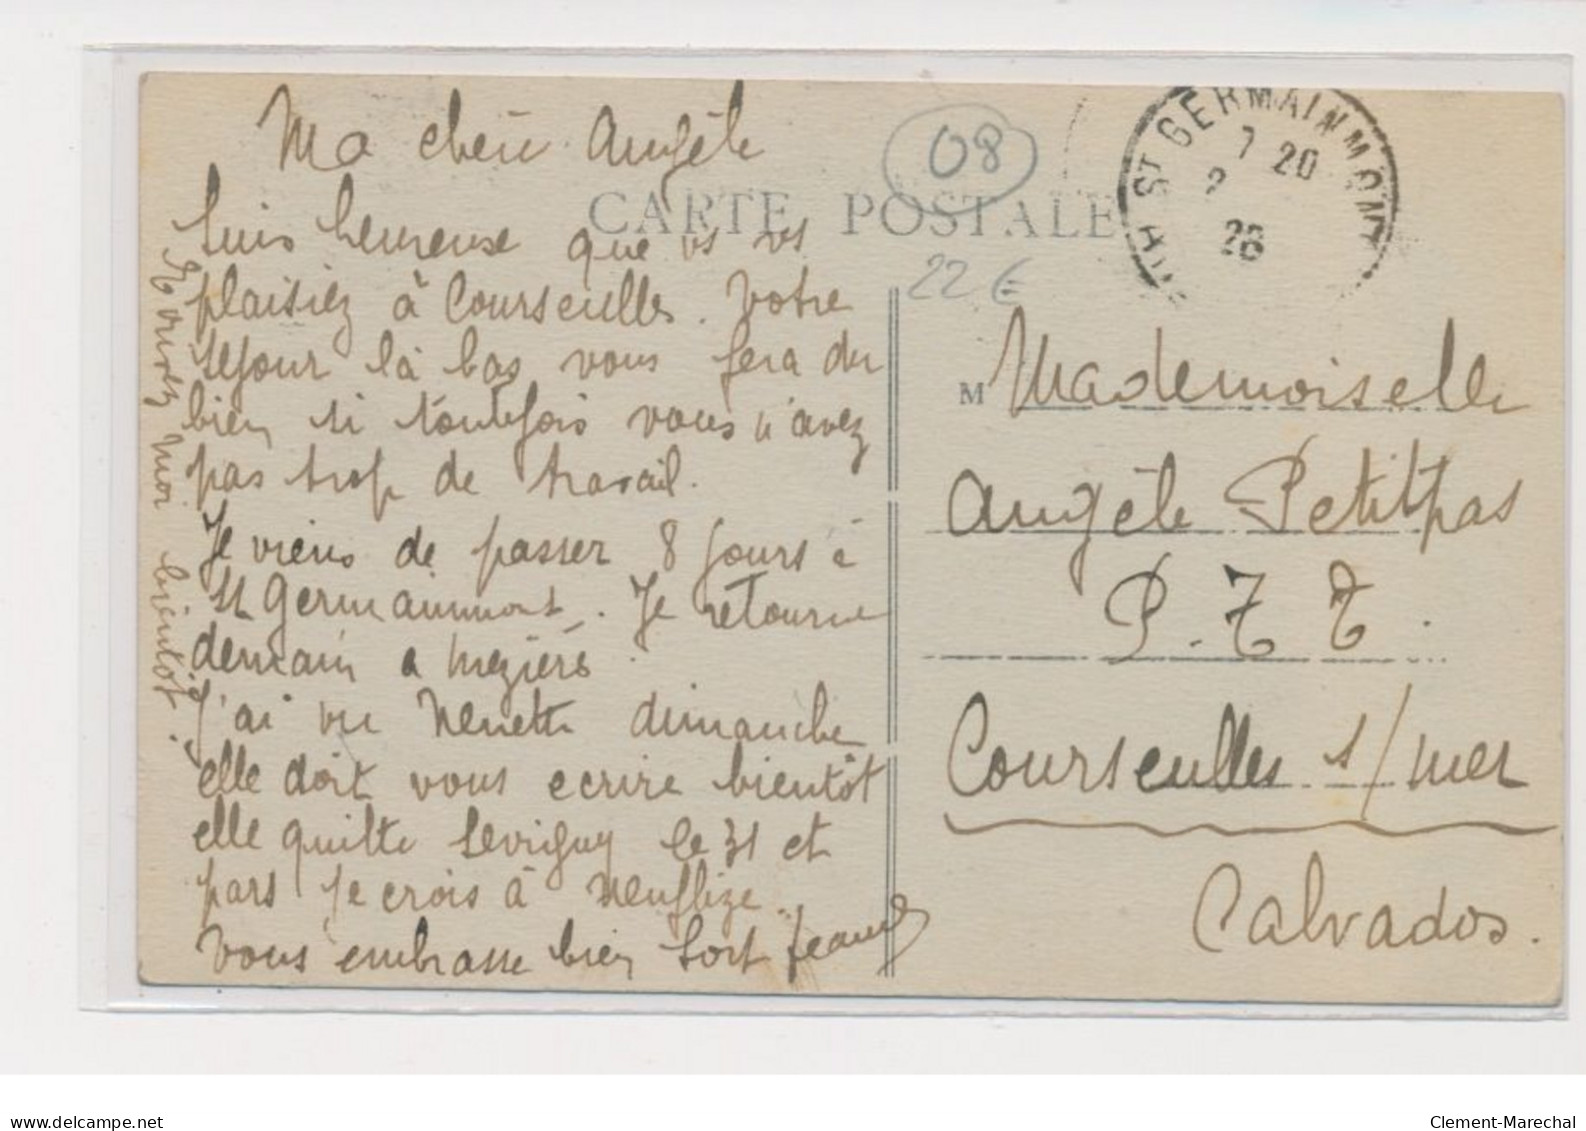 Ma chère Angèle
Suis heureuse que vs vs
plaisiez à Courseulles. Votre
séjour là bas vous fera du
bien si toutefois vous n'avez
pas trop de travail.
Je viens de passer 8 jours à
St Germainmont. Je retourne
demain à Mézières
J'ai vu Nenette dimanche
elle doit vous ecrire bientôt
elle quitte Sevigny le 31 et
pars je crois à Neuflize.
Vous embrasse bien fort Jeanne
Ecrivez moi bientôt.
CARTE POSTALE
08
22 €
ST GERMAINMONT
7 20
2
26
M Mademoiselle
Angèle Petitpas
P.T.T.
Courseulles s/mer
Calvados.
www.delcampe.net
Clement-Marechal